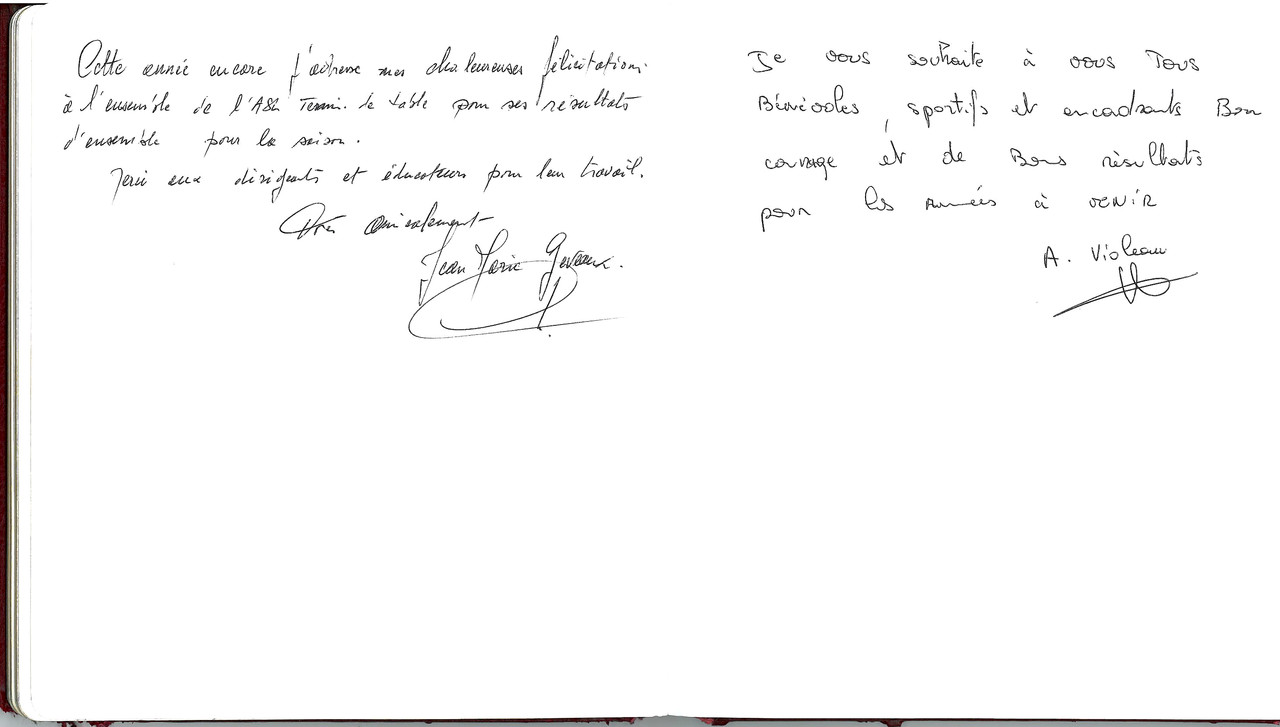 Cette année encore j'adresse mes chaleureuses félicitations
à l'ensemble de l'ASL Tennis de table pour ses résultats
d'ensemble pour la saison.
Merci aux dirigeants et éducateurs pour leur travail.
Très amicalement
Jean Marie Geveaux.
Je vous souhaite à vous Tous
Bénévoles, sportifs et encadrants Bon
courage et de Bons résultats
pour les années à venir
A. Violeau